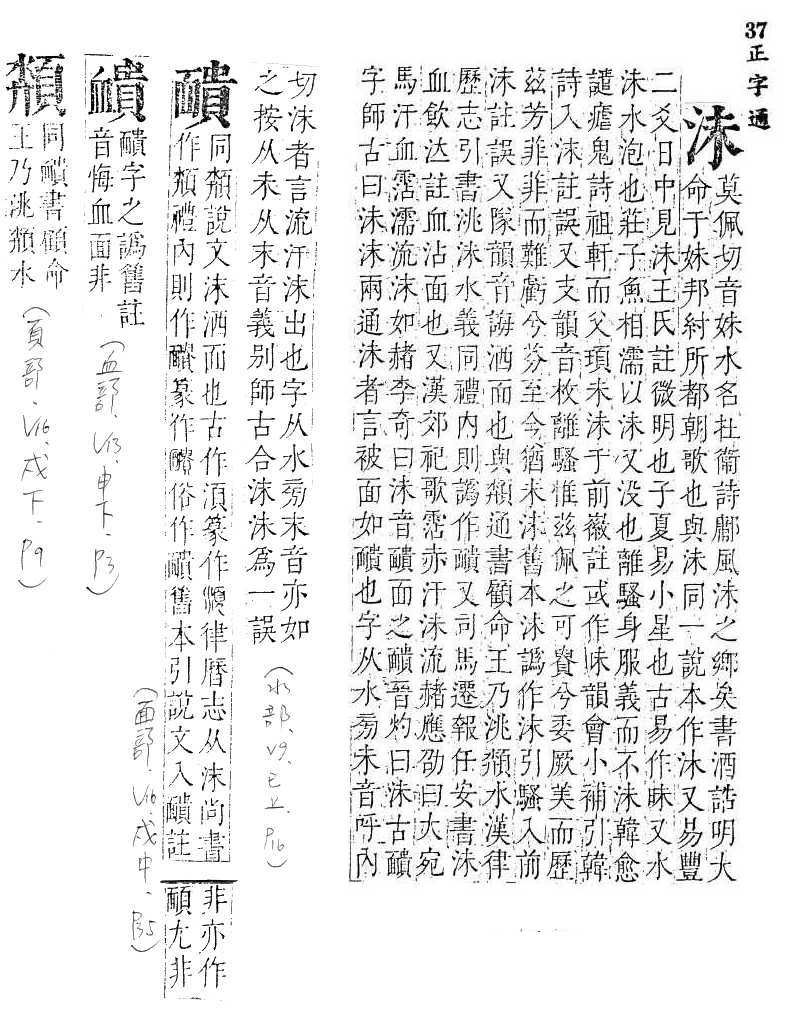 37 正字通
沬
莫佩切音妹水名杜衞詩鄘風沬之鄉矣書酒誥明大
命于妹邦紂所都朝歌也與沬同一說本作沬又易豐
二爻日中見沬王氏註微明也子夏易小星也古易作昧又水
沫水泡也莊子魚相濡以沫又没也離騷身服義而不沬韓愈
譴瘧鬼詩祖軒而父頊未沬于前徽註或作昧韻會小補引韓
詩入沫註誤又支韻音枚離騷惟兹佩之可貴兮委厥美而歷
兹芳菲菲而難虧兮芬至今猶未沬舊本沬譌作沫引騷入前
沫註誤又隊韻音誨洒面也與頮通書顧命王乃洮頮水漢律
歷志引書洮沬水義同禮内則譌作靧又司馬遷報任安書沬
血飲泣註血沾面也又漢郊祀歌霑赤汗沬流赭應劭曰大宛
馬汗血霑濡流沬如赭李奇曰沬音靧面之靧晉灼曰沬古靧
字師古曰沬沫兩通沬者言被面如靧也字从水旁未音呼内
切沫者言流汗沫出也字从水旁末音亦如
之按从未从末音義别師古合沬沫爲一誤
(水部、V9、巳上、P16)
靧
同頮說文沬洒面也古作湏篆作𩓔律曆志从沬尚書
作頮禮内則作靧篆作靧俗作靧舊本引說文入靧註
非亦作
尤非
(面部、V16、戌中、P35)
靧字之譌舊註
音悔血面非
(血部、V13、申下、P3)
頮
同靧書顧命
王乃洮頮水
(頁部、V16、戌下、P9)